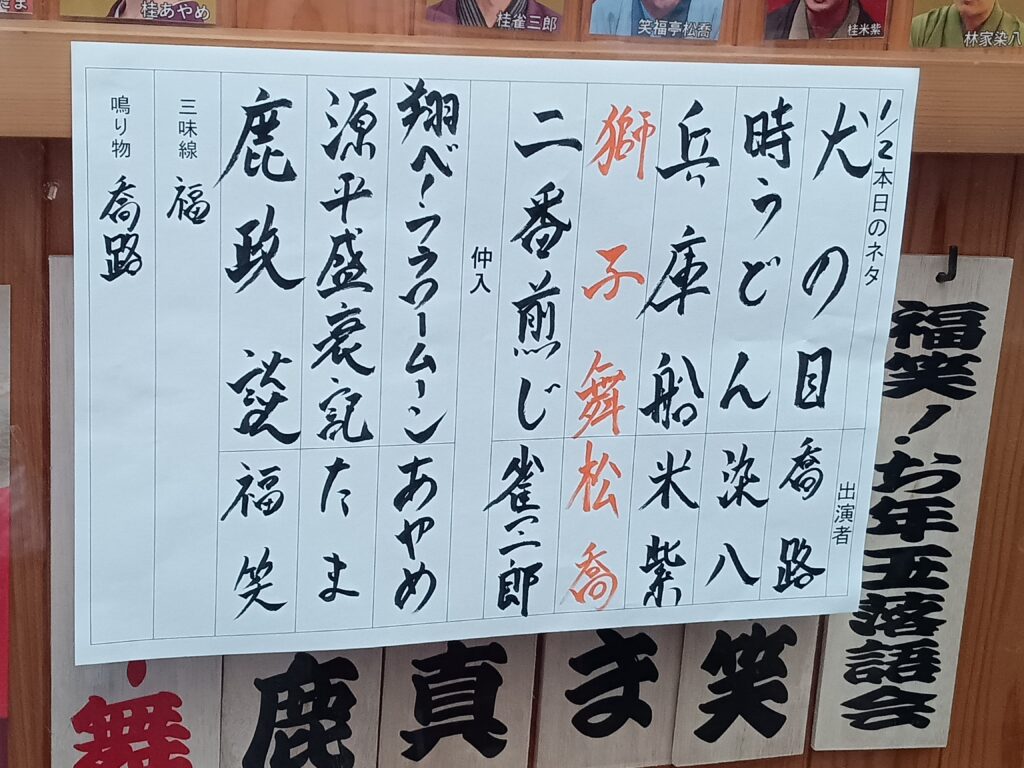 桂あやめ
桂雀三郎
笑福亭松喬
桂米紫
林家染八
1/2 本日のネタ
出演者
犬の目 喬路
時うどん 染八
兵庫船 米紫
獅子舞 松喬
二番煎じ 雀三郎
仲入
翔べ!フラワームーン あやめ
源平盛衰記 たま
鹿政談 福笑
三味線 福
鳴り物 喬路
福笑!お年玉落語会
笑
ま
真
鹿
舞